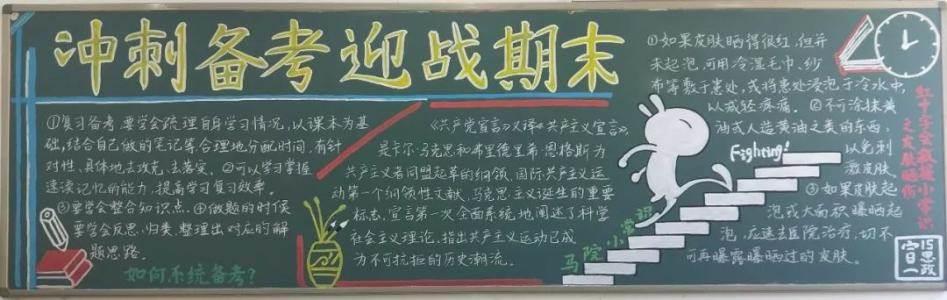 冲刺备考 迎战期末
①复习备考,要学会疏理自身学习情况,以课本为基
础,结合自己做的笔记等合理地分配时间,有针
对性、具体地去攻克、去落实。②可以学习掌握
速读记忆的能力,提高学习复习效率。
③要学会整合知识点。④做题的时候
要学会反思、归类、整理出对应的解
题思路。
如何系统备考?
《共产党宣言》又译《共产主义宣言》,
是卡尔·马克思和弗里德里希·恩格斯为
共产主义者同盟起草的纲领,国际共产主义运
动第一个纲领性文献,马克思主义诞生的重要
标志。宣言第一次全面系统地阐述了科学
社会主义理论,指出共产主义运动已成
为不可抗拒的历史潮流。
马院小常识
Fighting!
①如果皮肤晒得很红,但并
未起泡,可用冷湿毛巾、纱
布等敷于患处,或将患处浸泡于冷水中,
以减轻疼痛。②不可涂抹黄
油或人造黄油之类的东西,
以免刺
激皮肤。
③如果皮肤起
泡或大面积曝晒起
泡,应速去医院治疗,切不
可再曝露曝晒过的皮肤。
红十字会救援小常识
之皮肤晒伤
15思政
宣